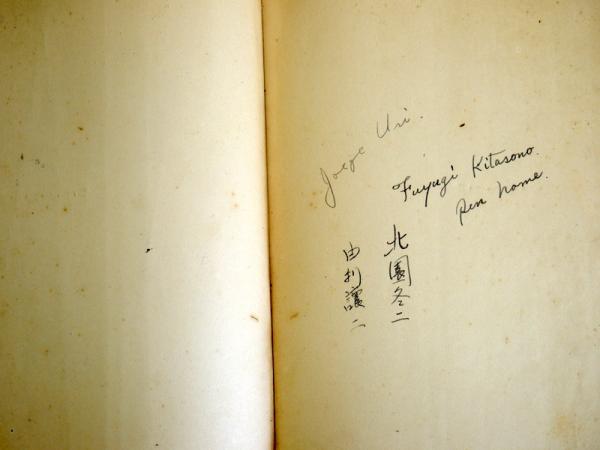 Joeje Uri.
Fuyugi Kitasono.
Pen name.
北園冬二
由利讓二